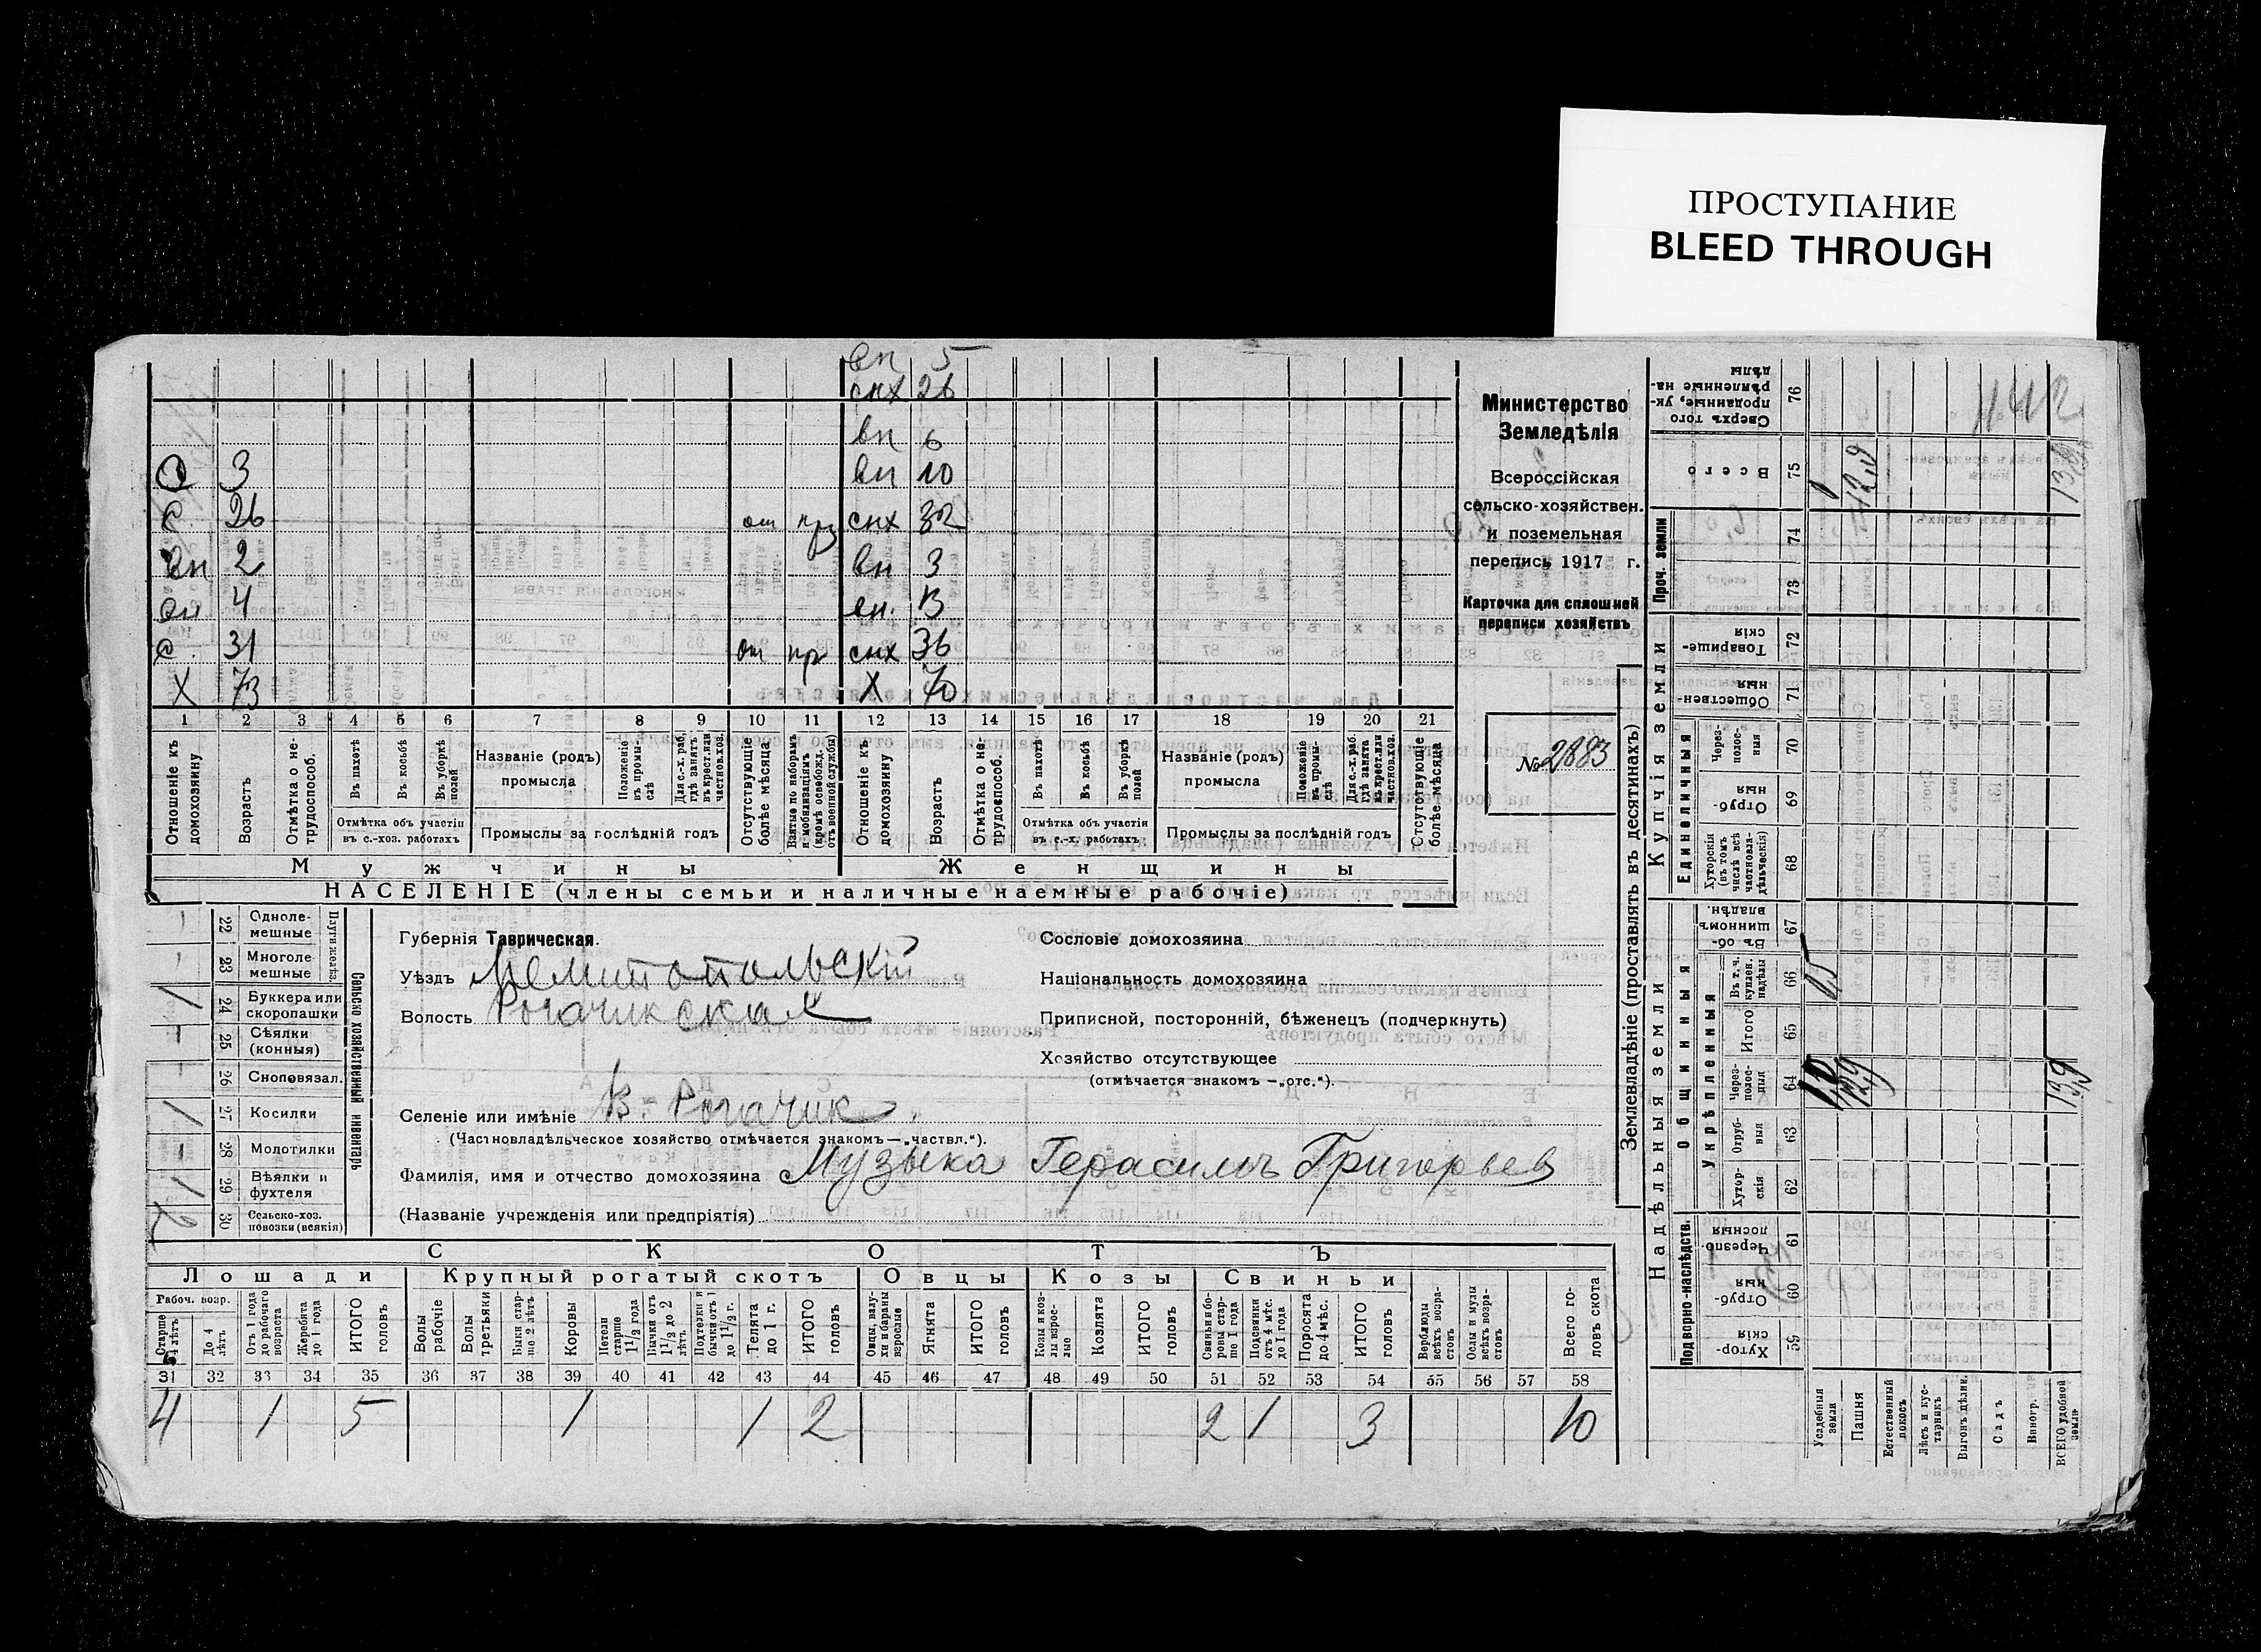 ПРОСТУПАНИЕ
BLEED THROUGH
вп 5
снх 26
вп 6
О 3 вп 10
с. 26 от пр снх 32
вп 2 вп 3
вп 4 вп. 13
с. 31 от пр снх 36
Х 73 Х 70
1 2 3 4 5 6 7 8 9 10 11 12 13 14 15 16 17 18 19 20 21
Отношеніе къ домохозяину
Возрастъ
Отмѣтка о не-трудоспособ.
Въ пахотѣ
Въ косьбѣ
Въ уборкѣ полей
Отмѣтка объ участіи въ с.-хоз. работахъ
Названіе (родъ) промысла
Положеніе въ промы-слѣ
Для с.-х. раб. гдѣ занятъ въ крест. или частнов. хоз.
Промыслы за послѣдній годъ
Отсутствующіе болѣе мѣсяца
Взятые по наборамъ и мобилизаціямъ (кромѣ освобожд. отъ военной службы)
Отношеніе къ домохозяину
Возрастъ
Отмѣтка о не-трудоспособ.
Въ пахотѣ
Въ косьбѣ
Въ уборкѣ полей
Отмѣтка объ участіи въ с.-х. работахъ
Названіе (родъ) промысла
Положеніе въ промы-слѣ
Для с.-х. раб. гдѣ занята въ крест. или частнов. хоз.
Промыслы за послѣдній годъ
Отсутствующіе болѣе мѣсяца
Мужчины Женщины
НАСЕЛЕНІЕ (члены семьи и наличные наемные рабочіе)
Министерство
Земледѣлія
Всероссійская
сельско-хозяйствен.
и поземельная
перепись 1917 г.
Карточка для сплошной
переписи хозяйствъ
№ 2883
Сельско хозяйственный инвентарь
Плуги желѣз.
- 22 Одноле-мешные
- 23 Многоле-мешные
/ 24 Буккера или скоропашки
- 25 Сѣялки (конныя)
- 26 Сноповязал.
/ 27 Косилки
- 28 Молотилки
/ 29 Вѣялки и фухтеля
2 30 Сельско-хоз. повозки (всякія)
Губернія Таврическая.
Уѣздъ Мелитопольскій
Волость Рогачикская
Селеніе или имѣніе В. Рогачик.
(Частновладѣльческое хозяйство отмѣчается знакомъ—„частвл.“).
Фамилія, имя и отчество домохозяина Музыка Герасимъ Григорьев
(Названіе учрежденія или предпріятія)
Сословіе домохозяина
Національность домохозяина
Приписной, посторонній, бѣженецъ (подчеркнуть)
Хозяйство отсутствующее
(отмѣчается знакомъ —„отс.“).
СКОТЪ
Лошади Крупный рогатый скотъ Овцы Козы Свиньи
Рабоч. возр.
Старше 4 лѣтъ
До 4 лѣтъ
Отъ 1 года до рабочаго возраста
Жеребята до 1 года
ИТОГО головъ
Волы рабочіе
Волы третьяки
Быки стар-ше 2 лѣтъ
Коровы
Нетели старше 1 1/2 года
Бычки отъ 1 1/2 до 2 лѣтъ
Подтелки и бычки отъ 1 до 1 1/2 г.
Телята до 1 г.
ИТОГО головъ
Овцы, валу-хи и бараны взрослые
Ягнята
ИТОГО головъ
Козы и коз-лы взрос-лые
Козлята
ИТОГО головъ
Свиньи и бо-ровы стар-ше 1 года
Подсвинки отъ 4 мѣс. до 1 года
Поросята до 4 мѣс.
ИТОГО головъ
Верблюды всѣхъ возра-стовъ
Ослы и мулы всѣхъ возра-стовъ
Всего го-ловъ скота
31 32 33 34 35 36 37 38 39 40 41 42 43 44 45 46 47 48 49 50 51 52 53 54 55 56 57 58
4 1 5 1 1 2 2 1 3 10
Землевладѣніе (проставлять въ десятинахъ)
Надѣльныя земли Купчія земли
Подворно-наслѣдств. Общинныя Укрѣпленныя Единоличныя Проч. земли
Хутор-скія 59
Отруб-ныя 60
Черезпо-лосныя 61
Хутор-скія 62
Отруб-ныя 63
Через-полос-ныя 64
Итого 65
Въ т. ч. куплен. надѣлы 66
Въ об-щинномъ владѣн. 67
Хуторскія (въ томъ числѣ всѣ частновла-дѣльческія) 68
Отруб-ныя 69
Через-полос-ныя 70
Обществен-ныя 71
Товарище-скія 72
73
74
Всего 75
Сверхъ того проданные, ук-рѣпленные на-дѣлы 76
Усадебныя земли
Пашня 12,9 12,9
Естественный покосъ
Лѣсъ и кус-тарникъ
Выгонъ дѣлян.
Садъ
Виногр.
ВСЕГО удобной земли 13,9